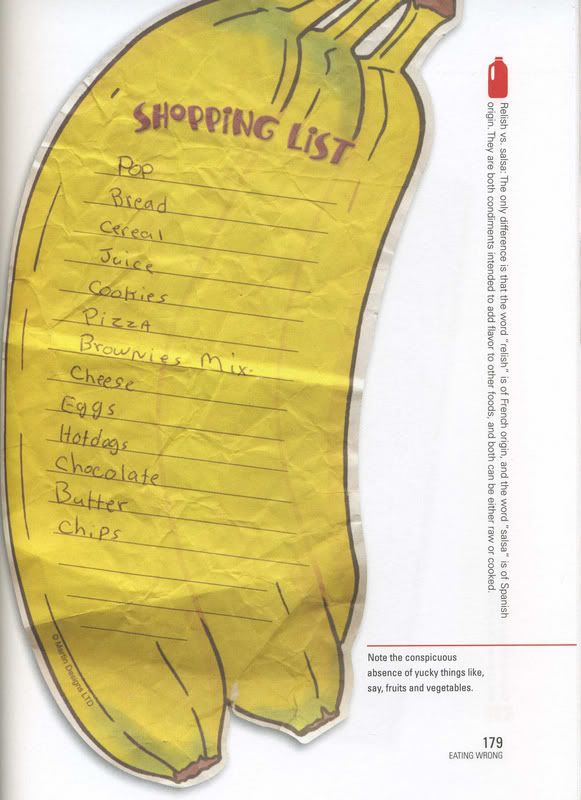 SHOPPING LIST
Pop
Bread
Cereal
Juice
Cookies
Pizza
Brownies Mix.
Cheese
Eggs
Hotdogs
Chocolate
Butter
Chips
© Martin Designs LTD
Relish vs. salsa: The only difference is that the word "relish" is of French origin, and the word "salsa" is of Spanish
origin. They are both condiments intended to add flavor to other foods, and both can be either raw or cooked.
Note the conspicuous
absence of yucky things like,
say, fruits and vegetables.
179
EATING WRONG